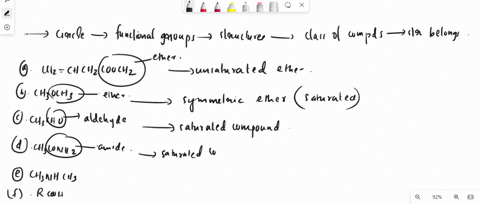 → circle → functional groups → structures → class of compds → str belongs
ether.
(a). CH2=CHCH2COOCH2 → unsaturated ether.
(b). CH3OCH3 → ether. → symmetric ether (saturated)
(c). CH3CHO → aldehyde → saturated compound.
(d). CH3CONH2 – amide. → saturated
(e) CH3NHCH3
(f). RCOH
92%